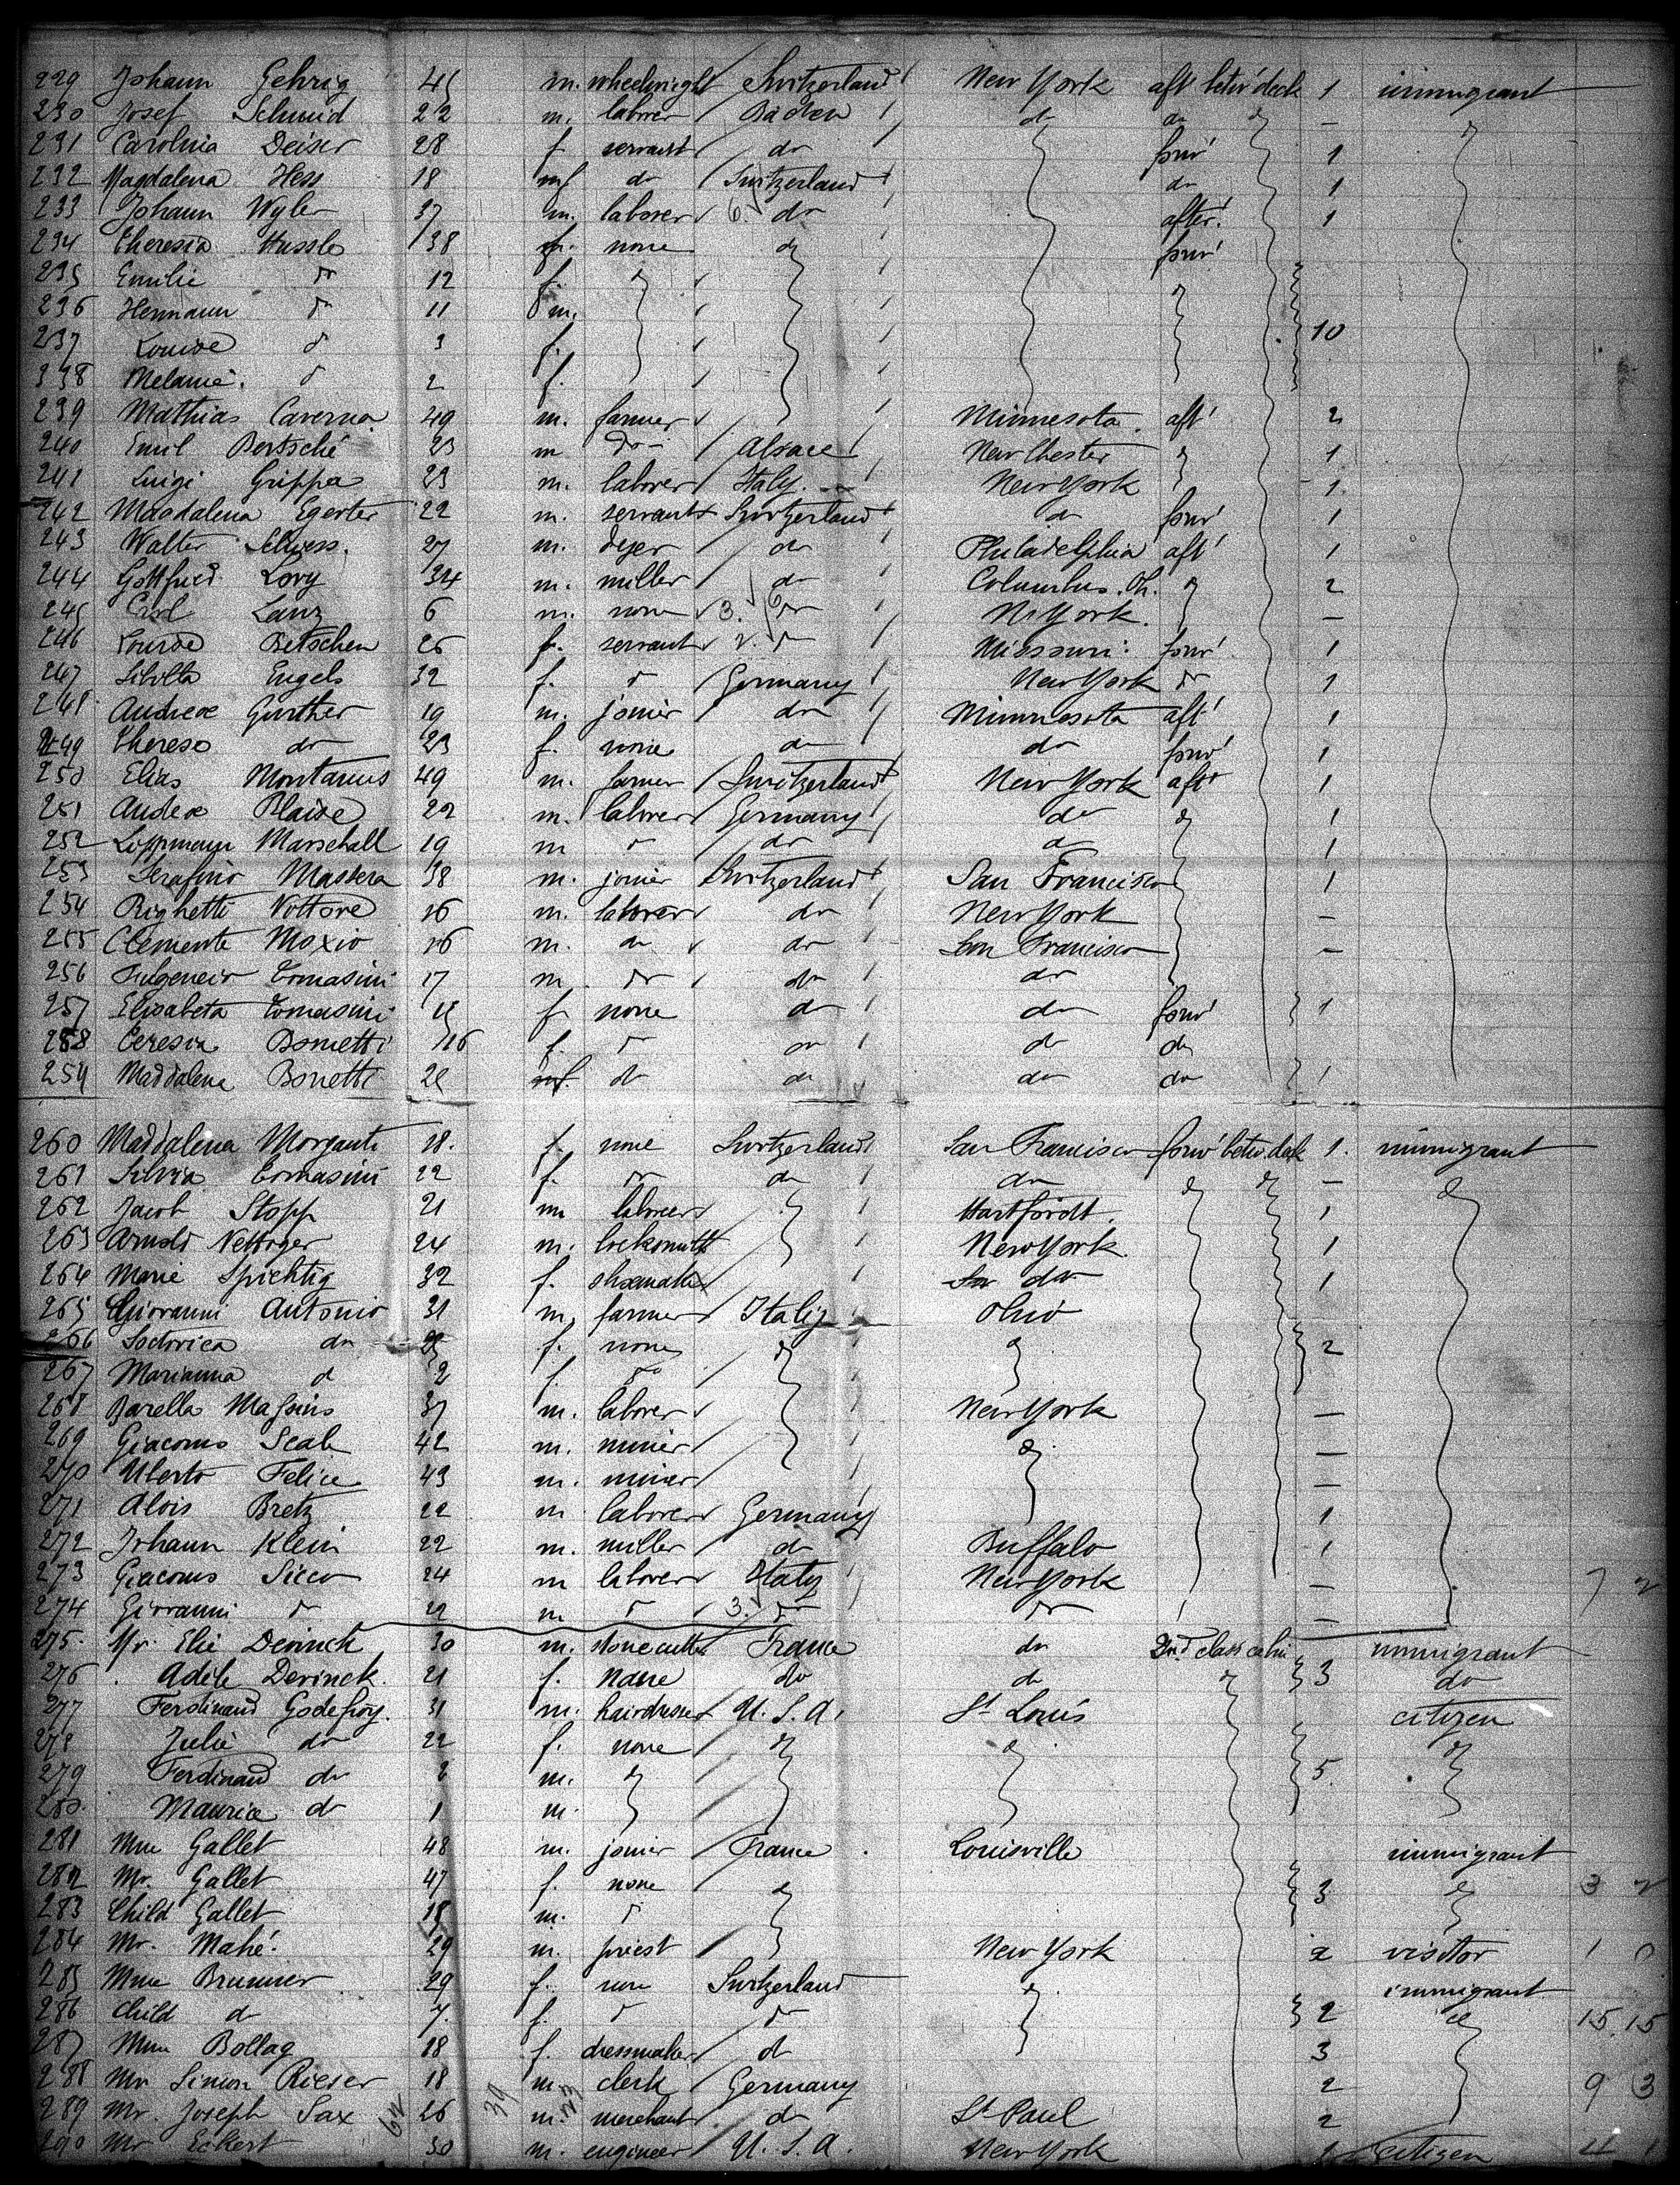 229 Johann Gehrig 45 m. wheelwright Switzerland New York aft betw deck 1 immigrant
230 Josef Schmid 22 m. laborer Baden do do do –
231 Carolina Deiser 28 f servant do forw' 1
232 Magdalena Hess 18 f do Switzerland do 1
233 Johann Wyler 37 m. laborer 6. do after. 1
234 Theresia Hussle 38 f. none do forw'
235 Emilie do 12 f. do
236 Hermann do 11 m.
237 Louise do 3 f. 10
238 Melanie. do 2 f.
239 Mathias Caverna 49 m. farmer Minnesota. aft' 2
240 Emil Bertsché 23 m do – Alsace New Chester do 1
241 Luigi Grippa 23 m. laborer Italy. New York 1.
242 Magdalena Egerter 22 m. servant Switzerland do forw' 1
243 Walter Schiess. 27 m. dyer do Philadelphia aft' 1
244 Gottfried Lory 34 m. miller do Columbus. Oh. do 2
245 Carl Lanz 6 m. none 3. do N. York. –
246 Louise Betschen 26 f. servant 2. do Missouri. forw' 1
247 Engels 32 f. do Germany New York do 1
248 Andreas Günther 19 m. joiner do Minnesota aft' 1
249 Therese do 23 f. none do do forw' 1
250 Elias Montarius 49 m. farmer Switzerland New York aft' 1
251 Andrea Blaise 22 m. laborer Germany do do 1
252 Marschall 19 m do do do 1
253 Serafino Massera 38 m. joiner Switzerland San Francisco 1
254 Righetti Vottore 16 m. laborer do New York –
255 Clemente Moxio 16 m. do do San Francisco –
256 Fulgencio Tomasini 17 m. do do do
257 Elisabeta Tomasini 18 f none do do forw' 1
258 Ceresia Bometti 16 f. do do do do
259 Maddalena Bonetti 28 f. do do do do 1
260 Maddalena Morganti 18. f. none Switzerland San Francisco forw' betw. deck 1. immigrant
261 Silvia Tomasini 22 f. do do do do do – do
262 Jacob Stopp 21 m laborer Hartfordt. 1
263 Arnold Nettoger 24 m. locksmith New York. 1
264 Marie Spichtig 32 f. shoemaker do 1
265 Giovanni Antonio 31 m. farmer Italy Ohio
266 Lodovica do f. none do do 2
267 Marianna do 2 f. do
268 Barella Massimo 37 m. laborer New York –
269 Giacomo Scala 42 m. miner do –
270 Uberto Felice 43 m. miner –
271 Alois Bretz 22 m laborer Germany 1
272 Johann Klein 22 m. miller do Buffalo 1
273 Giacomo Sicco 24 m laborer Italy New York – 7 2
274 Giovanni do 22 m do 3. do do –
275. Mr. Elie Derinck 30 m. stone cutter France do 2nd class cabin immigrant
276 Adèle Derinck. 21 f. none do do do 3 do
277 Ferdinand Godefroy. 31 m. hairdresser U. S. A. St Louis citizen
278 Julie do 22 f. none do do do
279 Ferdinand do 2 m. do 5.
280. Maurice do 1 m.
281 Mme Gallet 48 m. joiner France Louisville immigrant
282 Mr. Gallet 47 f. none do 3 do 3 2
283 Child Gallet 18 m. do
284 Mr. Mahé. 29 m. priest New York 2 visitor 1 0
285 Mme Brunner 29 f. none Switzerland do immigrant
286 Child do 7. f. do do 2 do 15 15
287 Mme Bollag 18 f. dressmaker do 3
288 Mr Simon Rieser 18 m. clerk Germany 2 9 3
289 Mr. Joseph Sax 62 26 39 m. 23 merchant do St Paul 2
290 Mr Eckert 30 m. engineer U. S. A. New York citizen 4 1